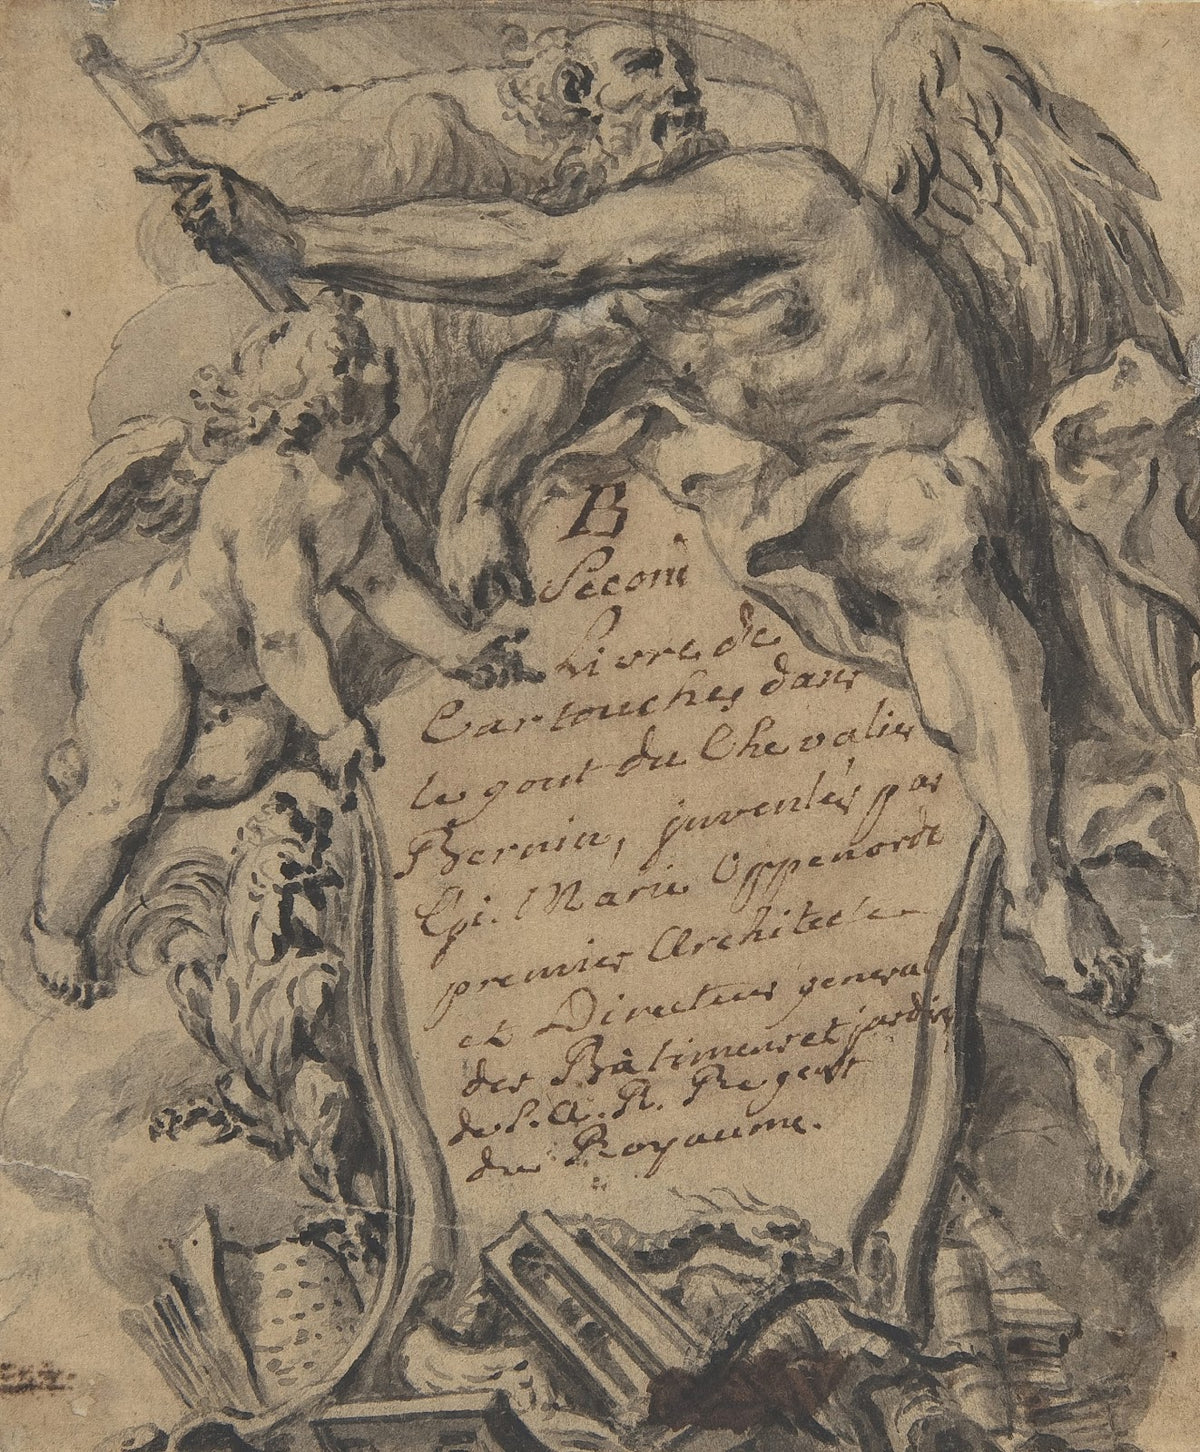 B
Second
Livre de
Cartouches dans
le gout du Chevalier
Bernin, juventés par
Gi. Marie Oppenorde
premier Architecte
et Directeur general
des Bàtimens et jardins
de S. A. R. Regent
du Royaume.